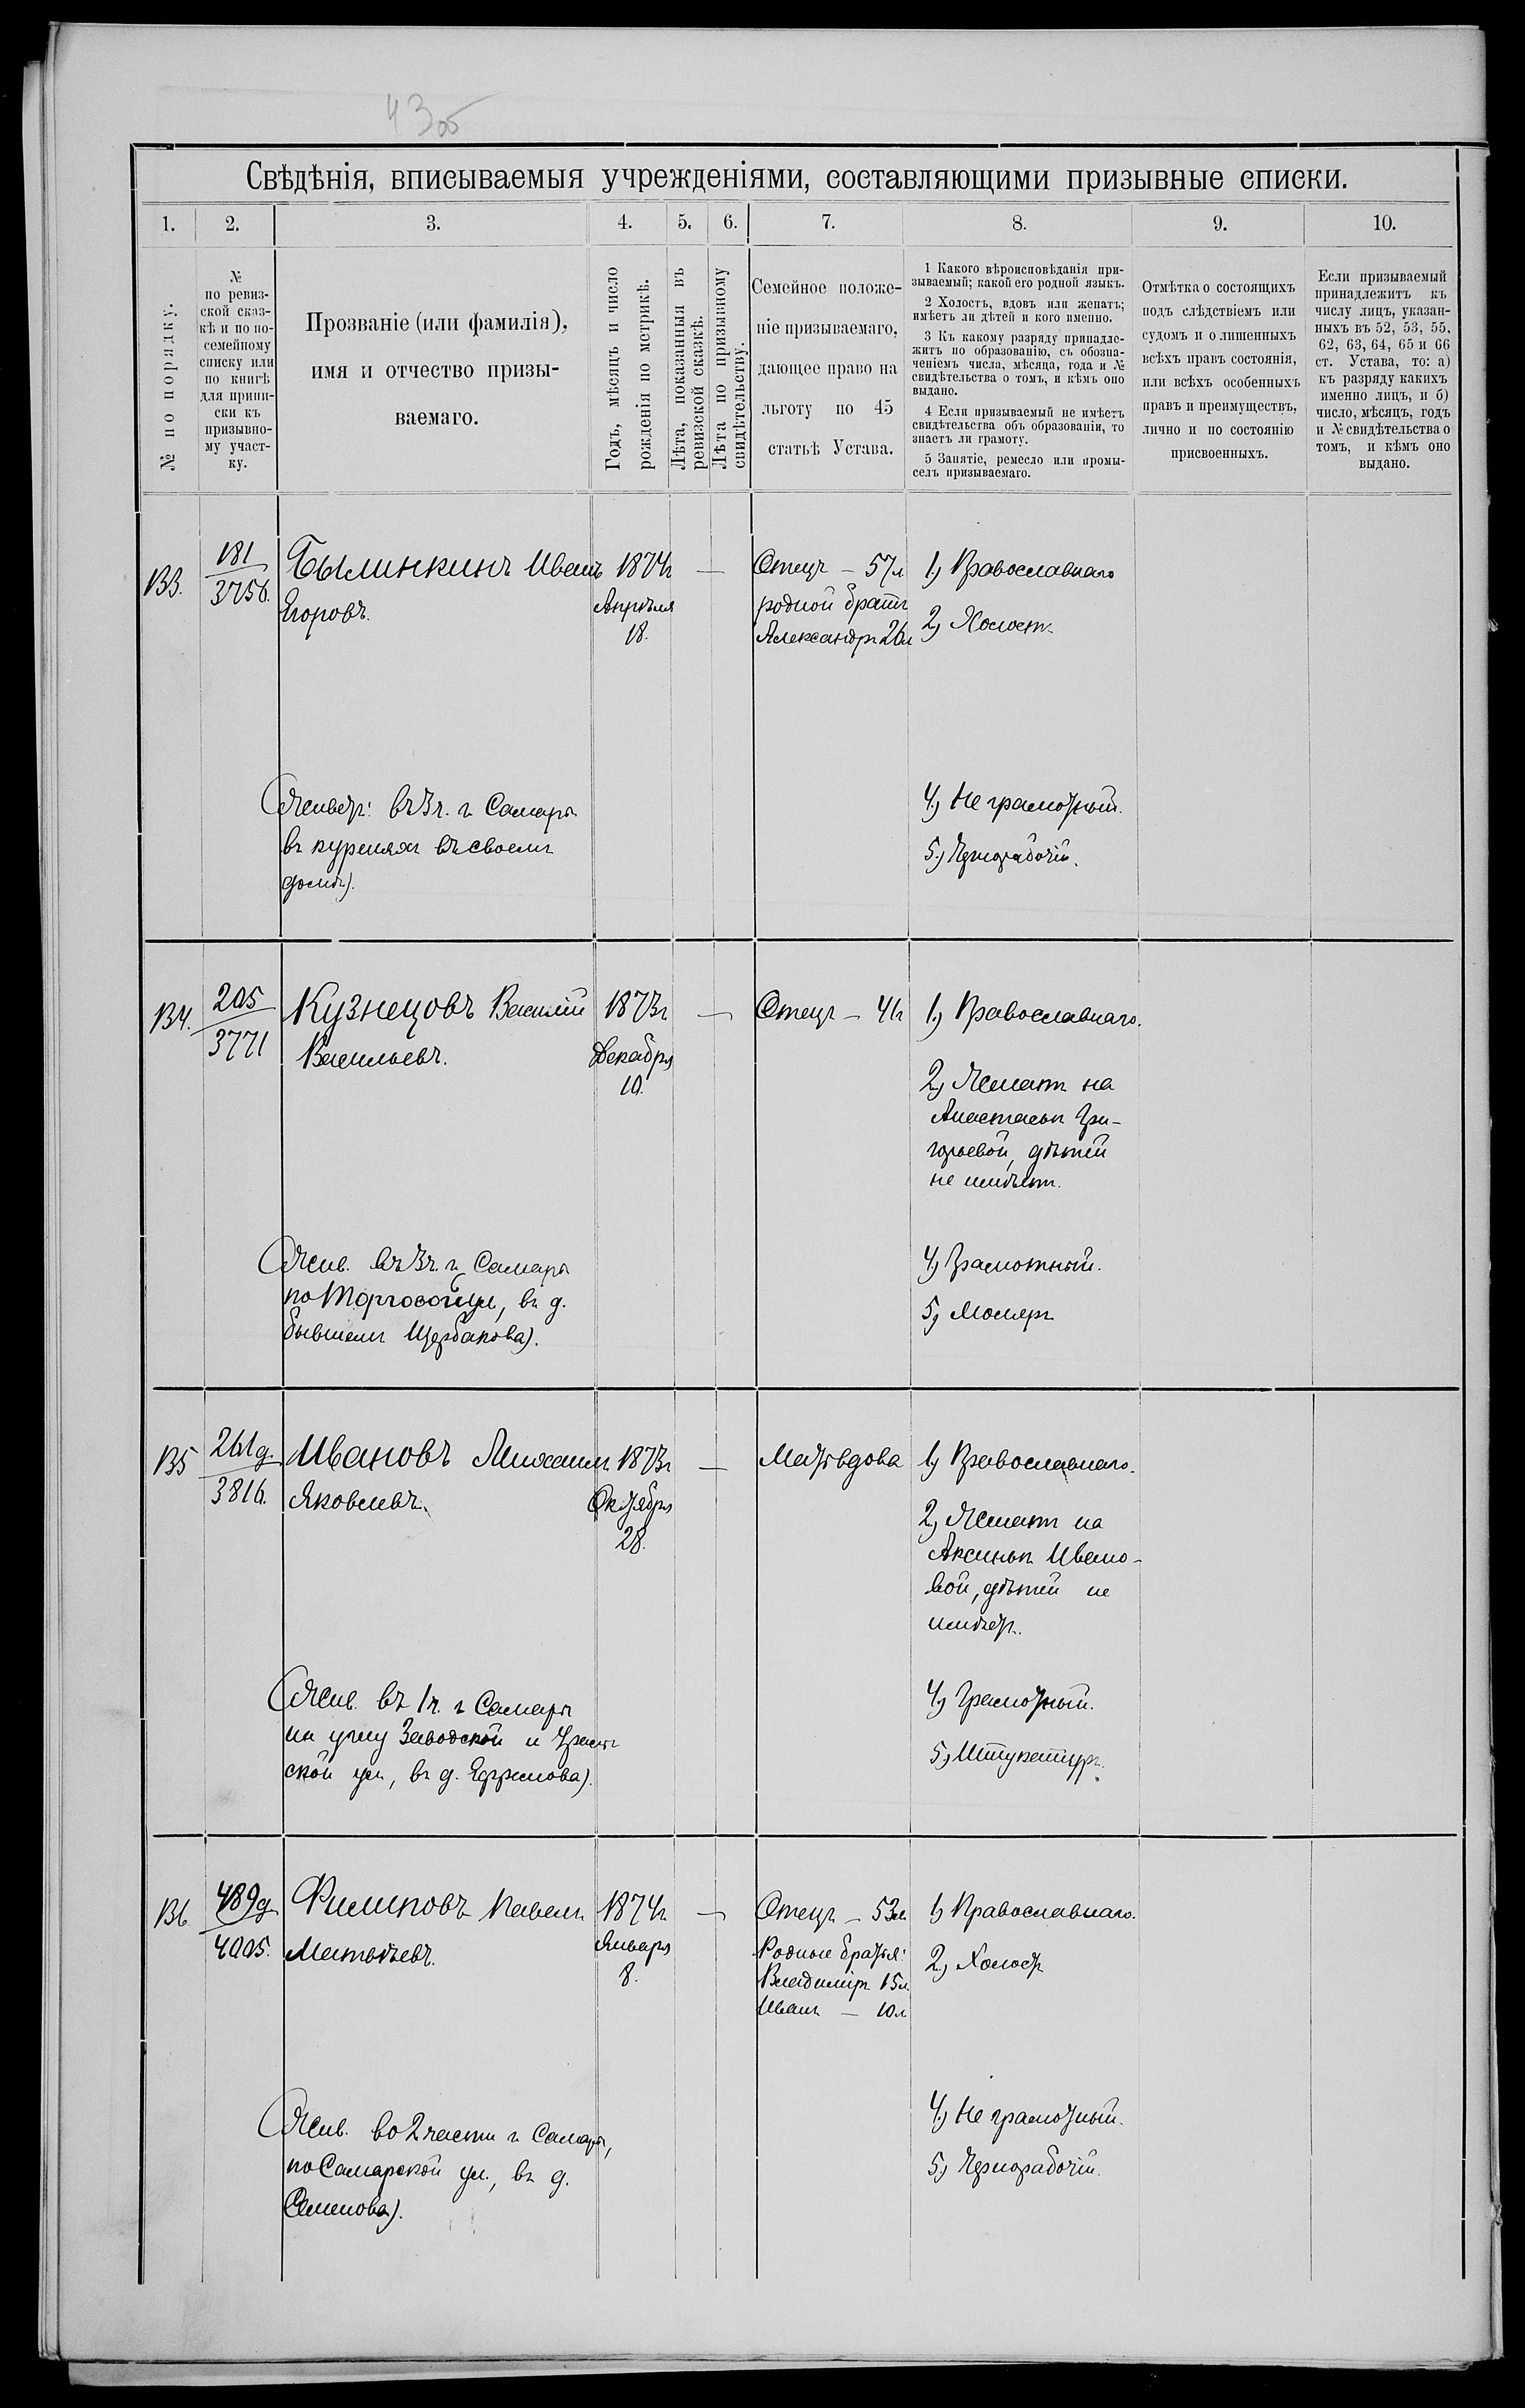 43об
Свѣдѣнія, вписываемыя учрежденіями, составляющими призывные списки.
1. 2. 3. 4. 5. 6. 7. 8. 9. 10.
№ по порядку.
№
по ревиз-
ской сказ-
кѣ и по по-
семейному
списку или
по книгѣ
для припи-
ски къ
призывно-
му участ-
ку.
Прозваніе (или фамилія),
имя и отчество призы-
ваемаго.
Годъ, мѣсяцъ и число
рожденія по метрикѣ.
Лѣта, показанныя въ
ревизской сказкѣ.
Лѣта по призывному
свидѣтельству.
Семейное положе-
ніе призываемаго,
дающее право на
льготу по 45
статьѣ Устава.
1 Какого вѣроисповѣданія при-
зываемый; какой его родной языкъ.
2 Холостъ, вдовъ или женатъ;
имѣетъ ли дѣтей и кого именно.
3 Къ какому разряду принадле-
житъ по образованію, съ обозна-
ченіемъ числа, мѣсяца, года и №
свидѣтельства о томъ, и кѣмъ оно
выдано.
4 Если призываемый не имѣетъ
свидѣтельства объ образованіи, то
знаетъ ли грамоту.
5 Занятіе, ремесло или промы-
селъ призываемаго.
Отмѣтка о состоящихъ
подъ слѣдствіемъ или
судомъ и о лишенныхъ
всѣхъ правъ состоянія,
или всѣхъ особенныхъ
правъ и преимуществъ,
лично и по состоянію
присвоенныхъ.
Если призываемый
принадлежитъ къ
числу лицъ, указан-
ныхъ въ 52, 53, 55,
62, 63, 64, 65 и 66
ст. Устава, то: а)
къ разряду какихъ
именно лицъ, и б)
число, мѣсяцъ, годъ
и № свидѣтельства о
томъ, и кѣмъ оно
выдано.
133.
181
3756.
Былинкинъ Иванъ
Егоровъ.
1874г
Апрѣля
18.
—
Отецъ – 57л
родной братъ
Александръ 26л
1) Православнаго
2) Холостъ
(Живетъ: въ 3ч. г. Самары
въ куреняхъ въ своемъ
домѣ).
4) Не грамотный.
5) Чернорабочій.
134.
205
3771
Кузнецовъ Василій
Васильевъ.
1873г
Декабря
10.
—
Отецъ – 41г
1) Православнаго.
2) Женатъ на
Анастасьи Гри-
горьевой, дѣтей
не имѣетъ.
(Жив. въ 3ч. г. Самары
по Торговой ул, въ д.
бывшемъ Щербакова).
4) Грамотный.
5) Маляръ
135
261д.
3816.
Ивановъ Михаилъ
Яковлевъ.
1873г
Октября
28.
—
Мать вдова
1) Православнаго.
2) Женатъ на
Аксиньи Ивано-
вой, дѣтей не
имѣетъ.
(Жив. въ 1ч. г Самары
на углу Заводской и
ской ул, въ д. Ефремова).
4) Грамотный.
5) Штукатуръ.
136
489д
4005.
Филиповъ Павелъ
Матвѣевъ.
1874г
Января
8.
—
Отецъ – 53л
Родные братья:
Владиміръ 15л.
Иванъ – 10л
1) Православнаго.
2) Холостъ
(Жив. во 2 части г. Самары,
по Самарской ул., въ д.
Семенова).
4) Не грамотный.
5) Чернорабочій.